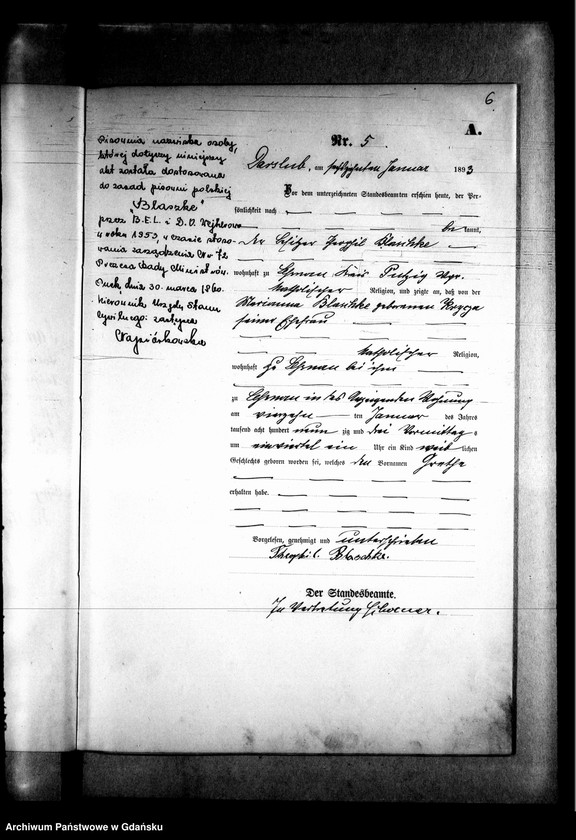 6
A.
Nr. 5
Darslub, am sechszehnten Januar 1893
Vor dem unterzeichneten Standesbeamten erschien heute, der Per-
sönlichkeit nach
be kannt,
der
Blaschke
wohnhaft zu Löschau Kreis Putzig Wpr.
katholischer Religion, und zeigte an, daß von der
Marianna Blaschke geborenen
seiner Ehefrau
katholischer Religion,
wohnhaft bei ihm
zu in des Anzeigenden Wohnung
am vierzehn ten Januar des Jahres
tausend acht hundert neun zig und drei Vormittag s
um ein viertel ein Uhr ein Kind weib lichen
Geschlechts geboren worden sei, welches den Vornamen Grethe
erhalten habe.
Vorgelesen, genehmigt und unterschrieben
Theophil Blaschke.
Der Standesbeamte.
In Vertretung
Pisownia nazwiska osoby,
której dotyczy niniejszy
akt została dostosowana
do zasad pisowni polskiej
"Blaszke"
przez
w roku 1953, w czasie stoso-
wania zarządzenia Nr 72
Prezesa Rady Ministrów.
Puck, dnia 30. marca 1960.
Kierownik Urzędu Stanu
Cywilnego: zastępca
Archiwum Państwowe w Gdańsku